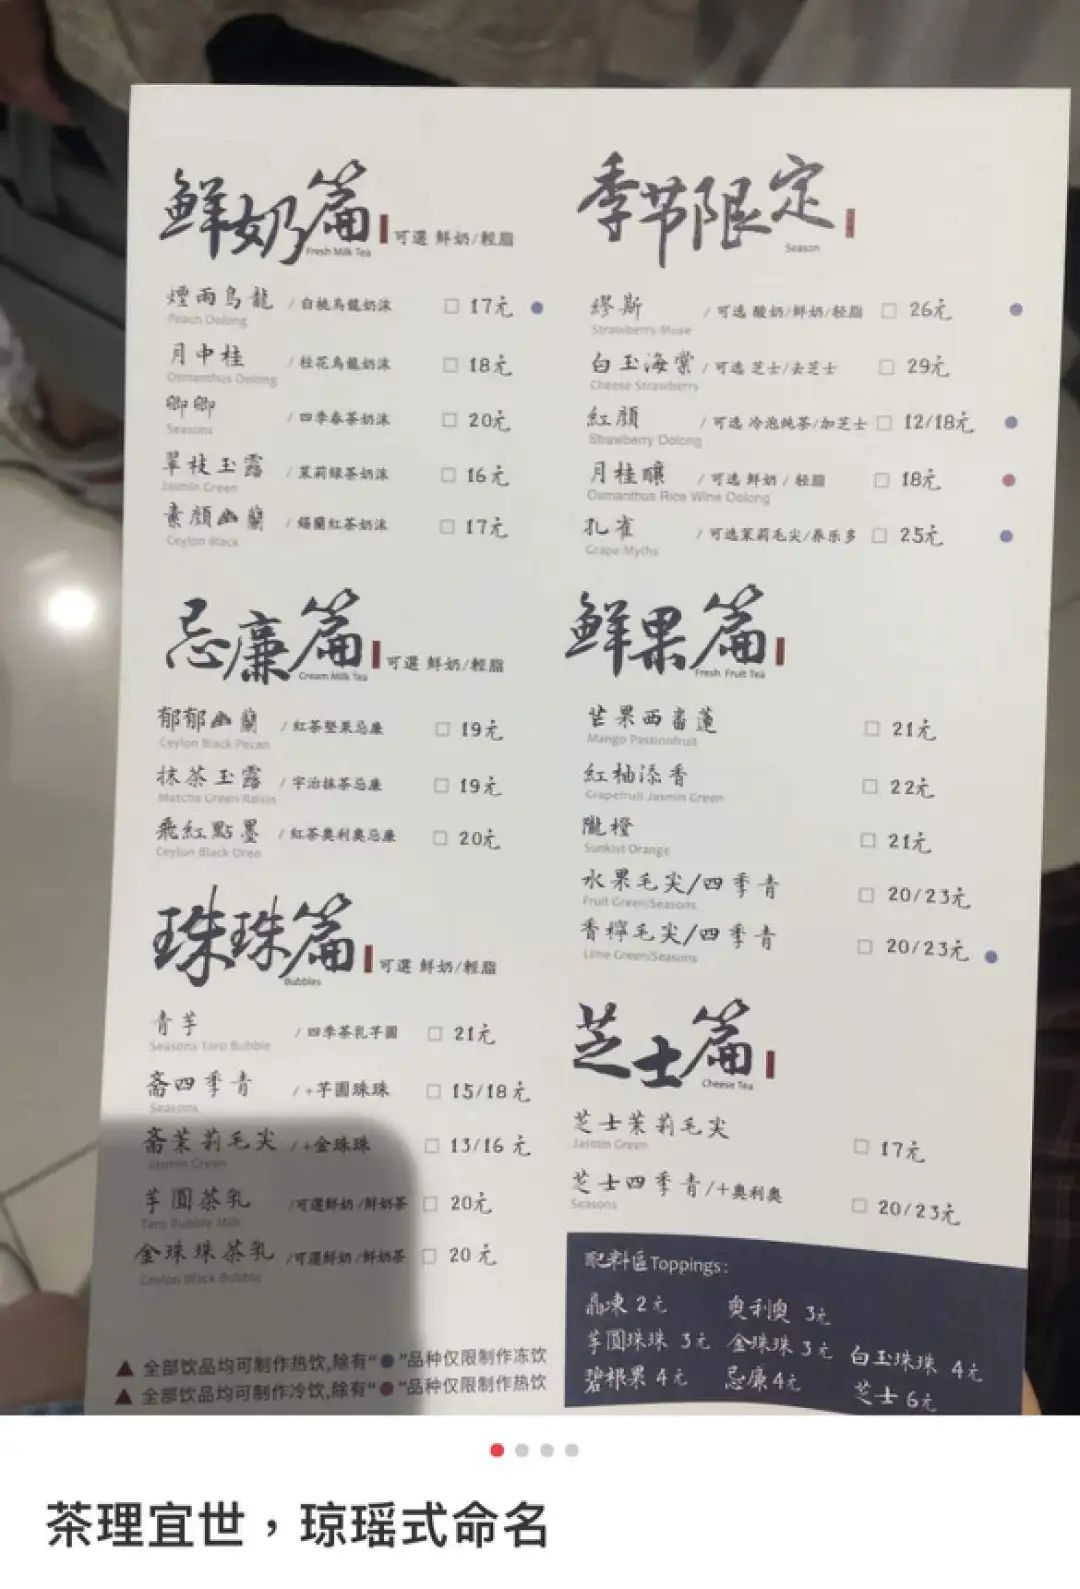 鲜奶篇
Fresh Milk Tea
可選 鮮奶/輕脂
煙雨烏龍 /白桃烏龍奶沫 □ 17元
Peach Oolong
月中桂 /桂花烏龍奶沫 □ 18元
Osmanthus Oolong
卿卿 /四季春茶奶沫 □ 20元
Seasons
翠枝玉露 /茉莉綠茶奶沫 □ 16元
Jasmin Green
素顏幽蘭 /錫蘭紅茶奶沫 □ 17元
Ceylon Black
忌廉篇
Cream Milk Tea
可選 鮮奶/輕脂
郁郁幽蘭 /紅茶堅果忌廉 □ 19元
Ceylon Black Pecan
抹茶玉露 /宇治抹茶忌廉 □ 19元
Matcha Green Raisin
飛紅點墨 /紅茶奧利奧忌廉 □ 20元
Ceylon Black Oreo
珠珠篇
Bubbles
可選 鮮奶/輕脂
青芋 /四季茶乳芋圓 □ 21元
Seasons Taro Bubble
斋四季青 /+芋圓珠珠 □ 15/18元
Seasons
斋茉莉毛尖 /+金珠珠 □ 13/16元
Jasmin Green
芋圓茶乳 /可選鮮奶/鮮奶茶 □ 20元
Taro Bubble Milk
金珠珠茶乳 /可選鮮奶/鮮奶茶 □ 20元
Ceylon Black Bubble
▲ 全部饮品均可制作热饮,除有“●”品种仅限制作冻饮
▲ 全部饮品均可制作冷饮,除有“●”品种仅限制作热饮
季节限定
Season
繆斯 /可选 酸奶/鲜奶/轻脂 □ 26元
Strawberry Muse
白玉海棠 /可选 芝士/去芝士 □ 29元
Cheese Strawberry
紅顏 /可选 冷泡纯茶/加芝士 □ 12/18元
Strawberry Oolong
月桂釀 /可选 鲜奶/轻脂 □ 18元
Osmanthus Rice Wine Oolong
孔雀 /可选茉莉毛尖/养乐多 □ 25元
Grape Myths
鲜果篇
Fresh Fruit Tea
芒果西番蓮 □ 21元
Mango Passionfruit
紅柚添香 □ 22元
Grapefruit Jasmin Green
隴橙 □ 21元
Sunkist Orange
水果毛尖/四季青 □ 20/23元
Fruit Green/Seasons
香檸毛尖/四季青 □ 20/23元
Lime Green/Seasons
芝士篇
Cheese Tea
芝士茉莉毛尖 □ 17元
Jasmin Green
芝士四季青/+奥利奥 □ 20/23元
Seasons
配料區Toppings:
晶凍 2元 奥利奥 3元
芋圓珠珠 3元 金珠珠 3元 白玉珠珠 4元
碧根果 4元 忌廉4元 芝士 6元
茶理宜世，琼瑶式命名